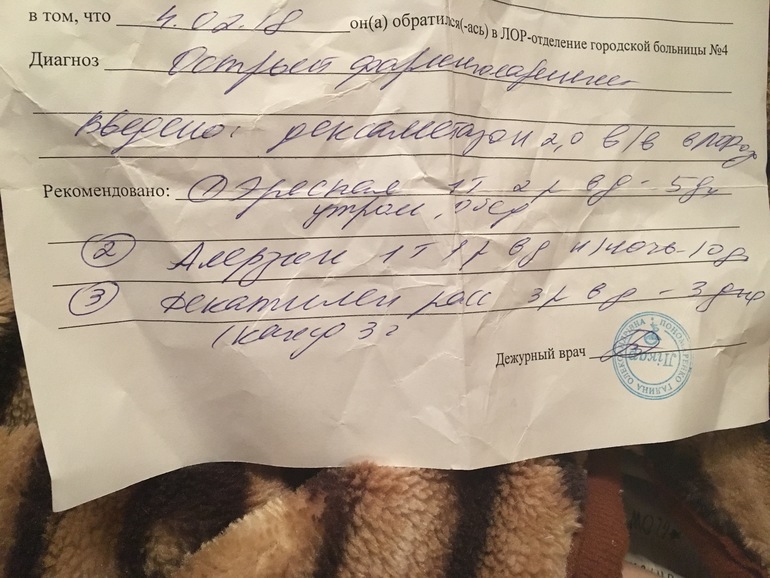 в том, что 4.02.18 он(а) обратился(-ась) в ЛОР-отделение городской больницы №4
Диагноз Острый фаринголарингит
Введено: дексаметазон 2,0 в/в
Рекомендовано: ① Эреспал 1т 2р в д - 5дн
утром, обед
② Алерзин 1т 1р в д н/ночь - 10д
③ Декатилен расс 3р в д - 3 дня
Дежурный врач
Лікар